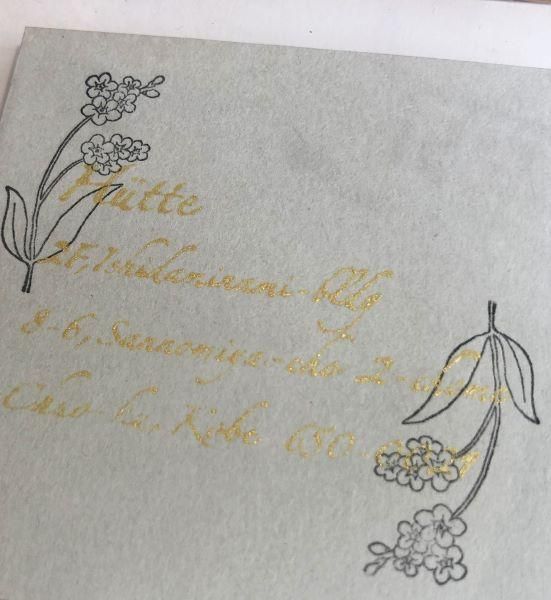 Hütte
2F, Ishidaminami-bldg
8-6, Sannomiya-cho 2-chome
Chuo-ku, Kobe 650-0021